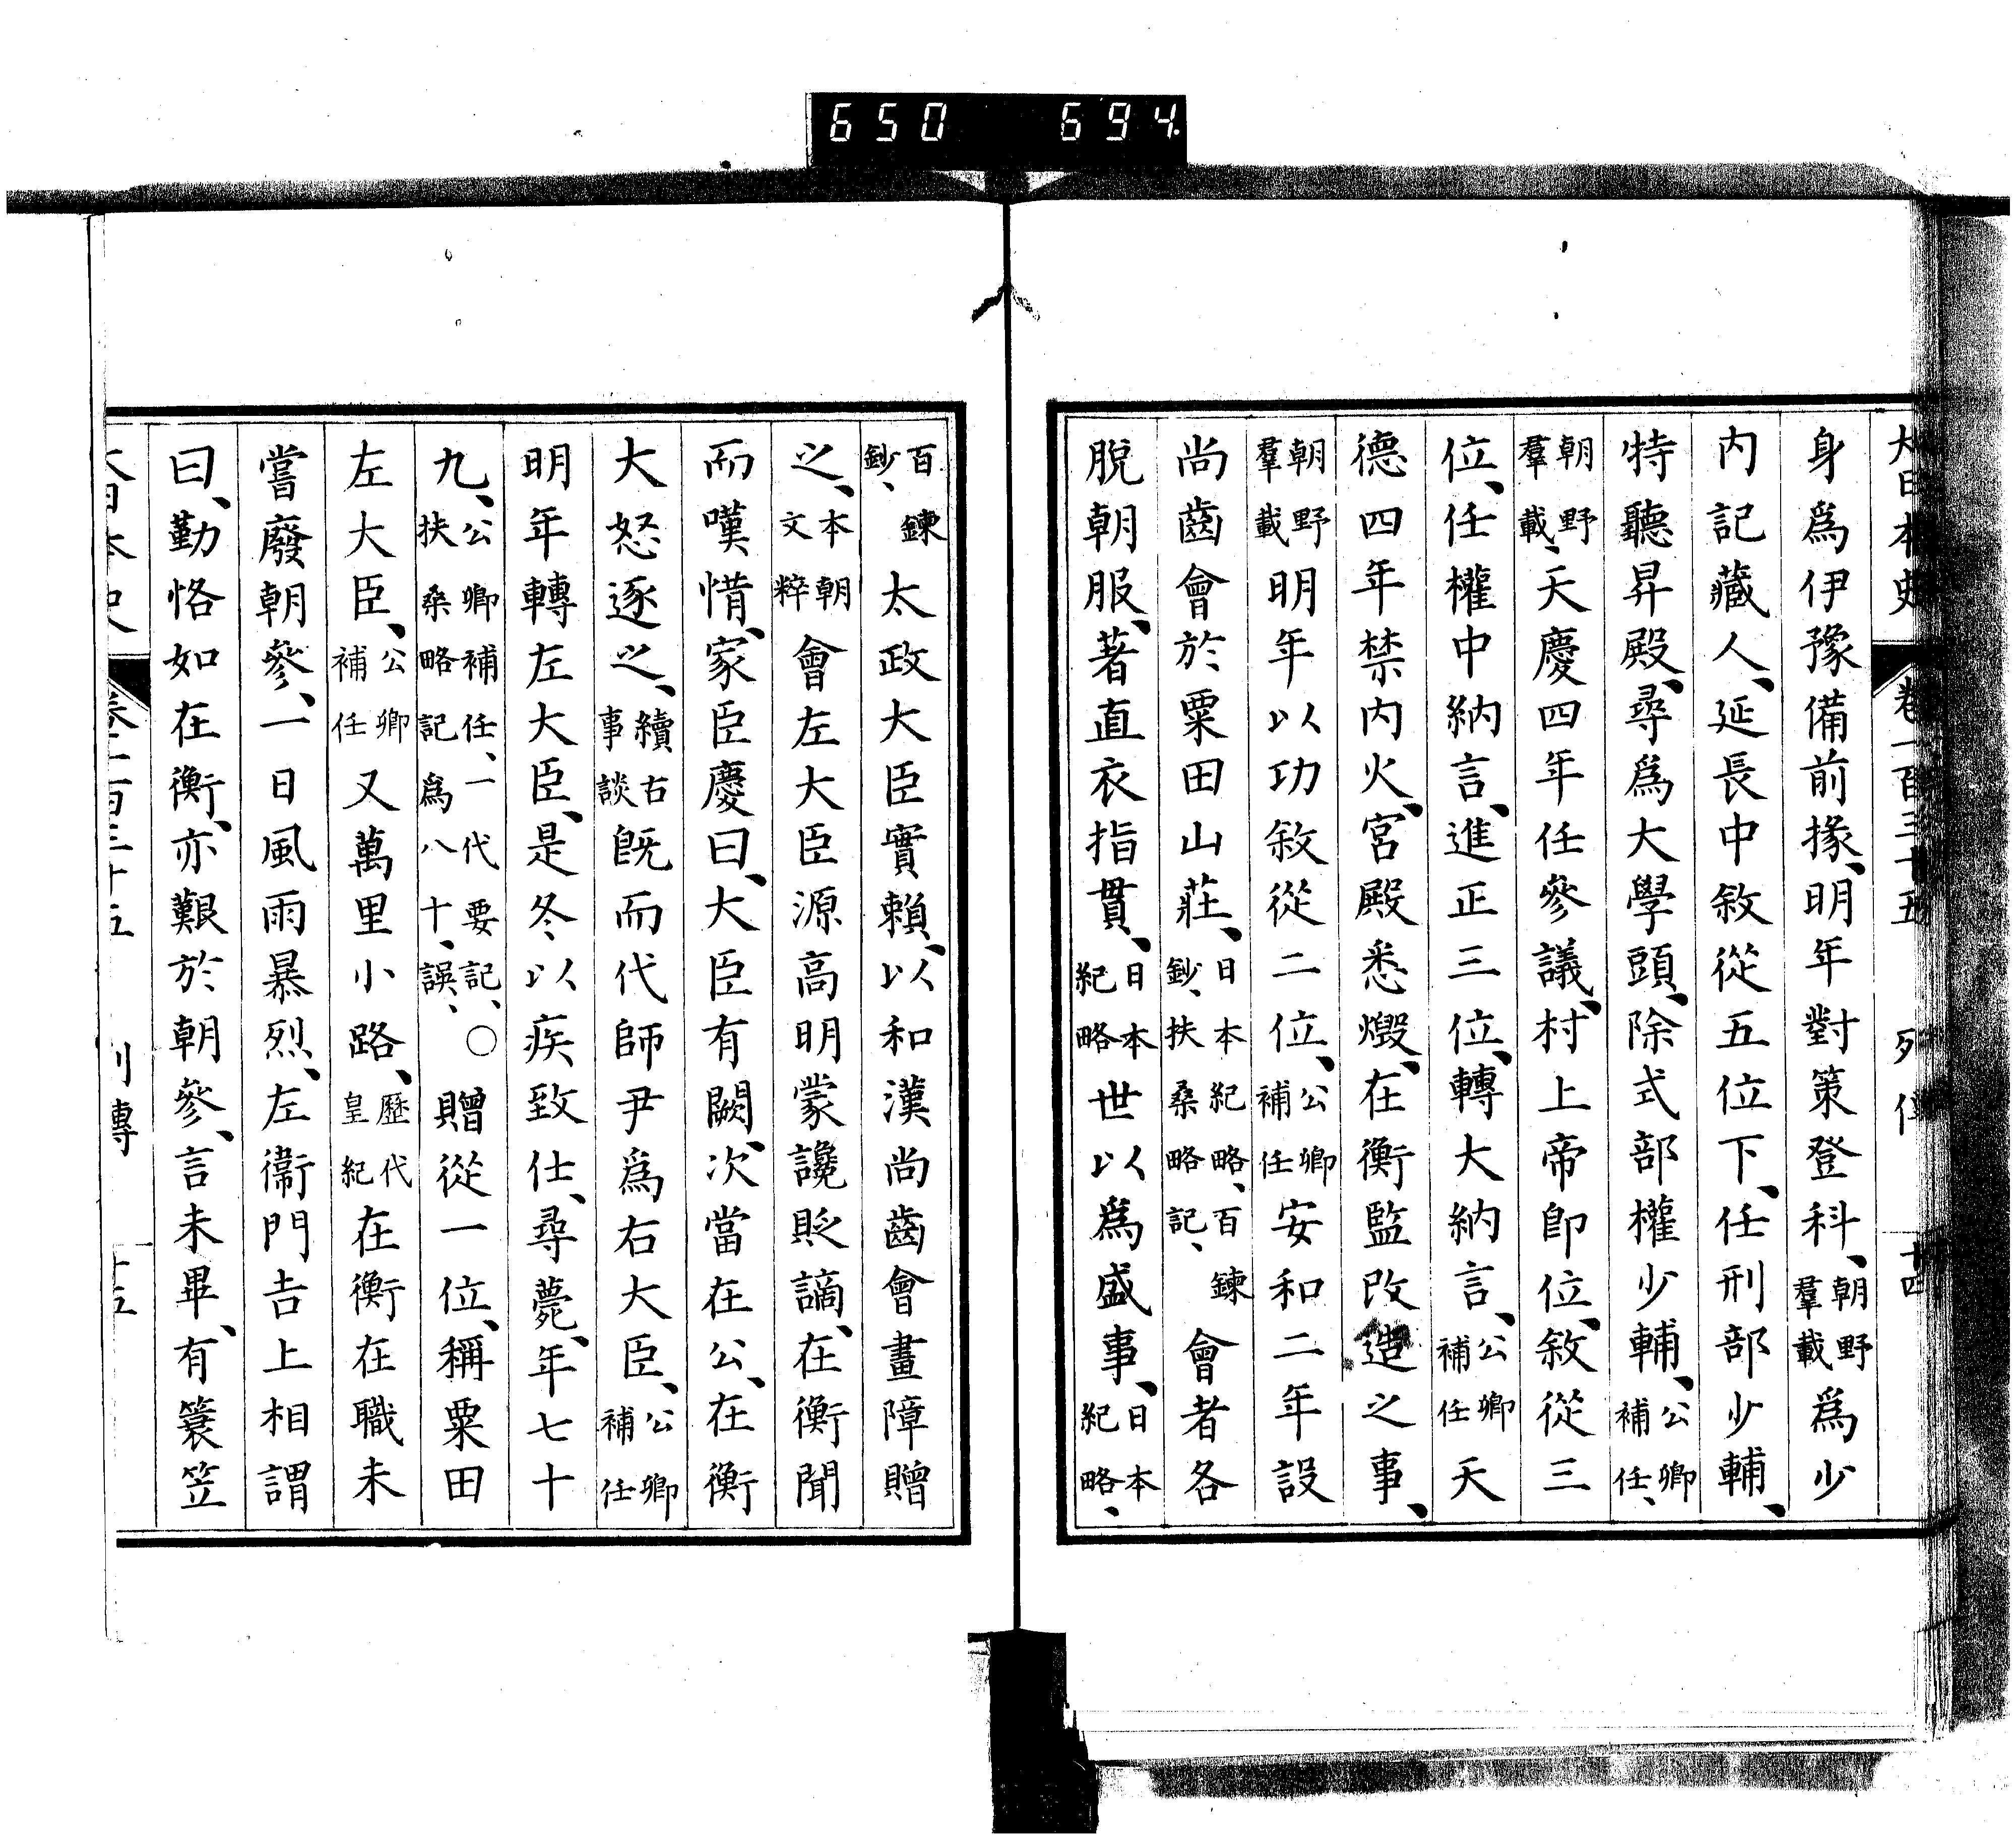 650 694
大日本史 卷一百三十五 列傳 十四
身爲伊豫備前掾、明年對策登科、朝野羣載爲少
内記藏人、延長中敘從五位下、任刑部少輔、
特聽昇殿、尋爲大學頭、除式部權少輔、公卿補任、
朝野羣載、天慶四年任參議、村上帝卽位、敘從三
位、任權中納言、進正三位、轉大納言、公卿補任天
德四年禁内火、宮殿悉燬、在衡監改造之事、
朝野羣載明年以功敘從二位、公卿補任安和二年設
尚齒會於粟田山莊、日本紀略、百鍊鈔、扶桑略記、會者各
脫朝服、著直衣指貫、日本紀略世以爲盛事、日本紀略、
百鍊鈔、太政大臣實賴、以和漢尚齒會畫障贈
之、本朝文粹會左大臣源高明蒙讒貶謫、在衡聞
而嘆惜、家臣慶曰、大臣有闕、次當在公、在衡
大怒逐之、續古事談既而代師尹爲右大臣、公卿補任
明年轉左大臣、是冬以疾致仕、尋薨、年七十
九、公卿補任、一代要記、○扶桑略記爲八十、誤、贈從一位、稱粟田
左大臣、公卿補任又萬里小路、歷代皇紀在衡在職未
嘗廢朝參、一日風雨暴烈、左衞門吉上相謂
曰、勤恪如在衡、亦艱於朝參、言未畢、有簑笠
大日本史 卷一百三十五 列傳 十五